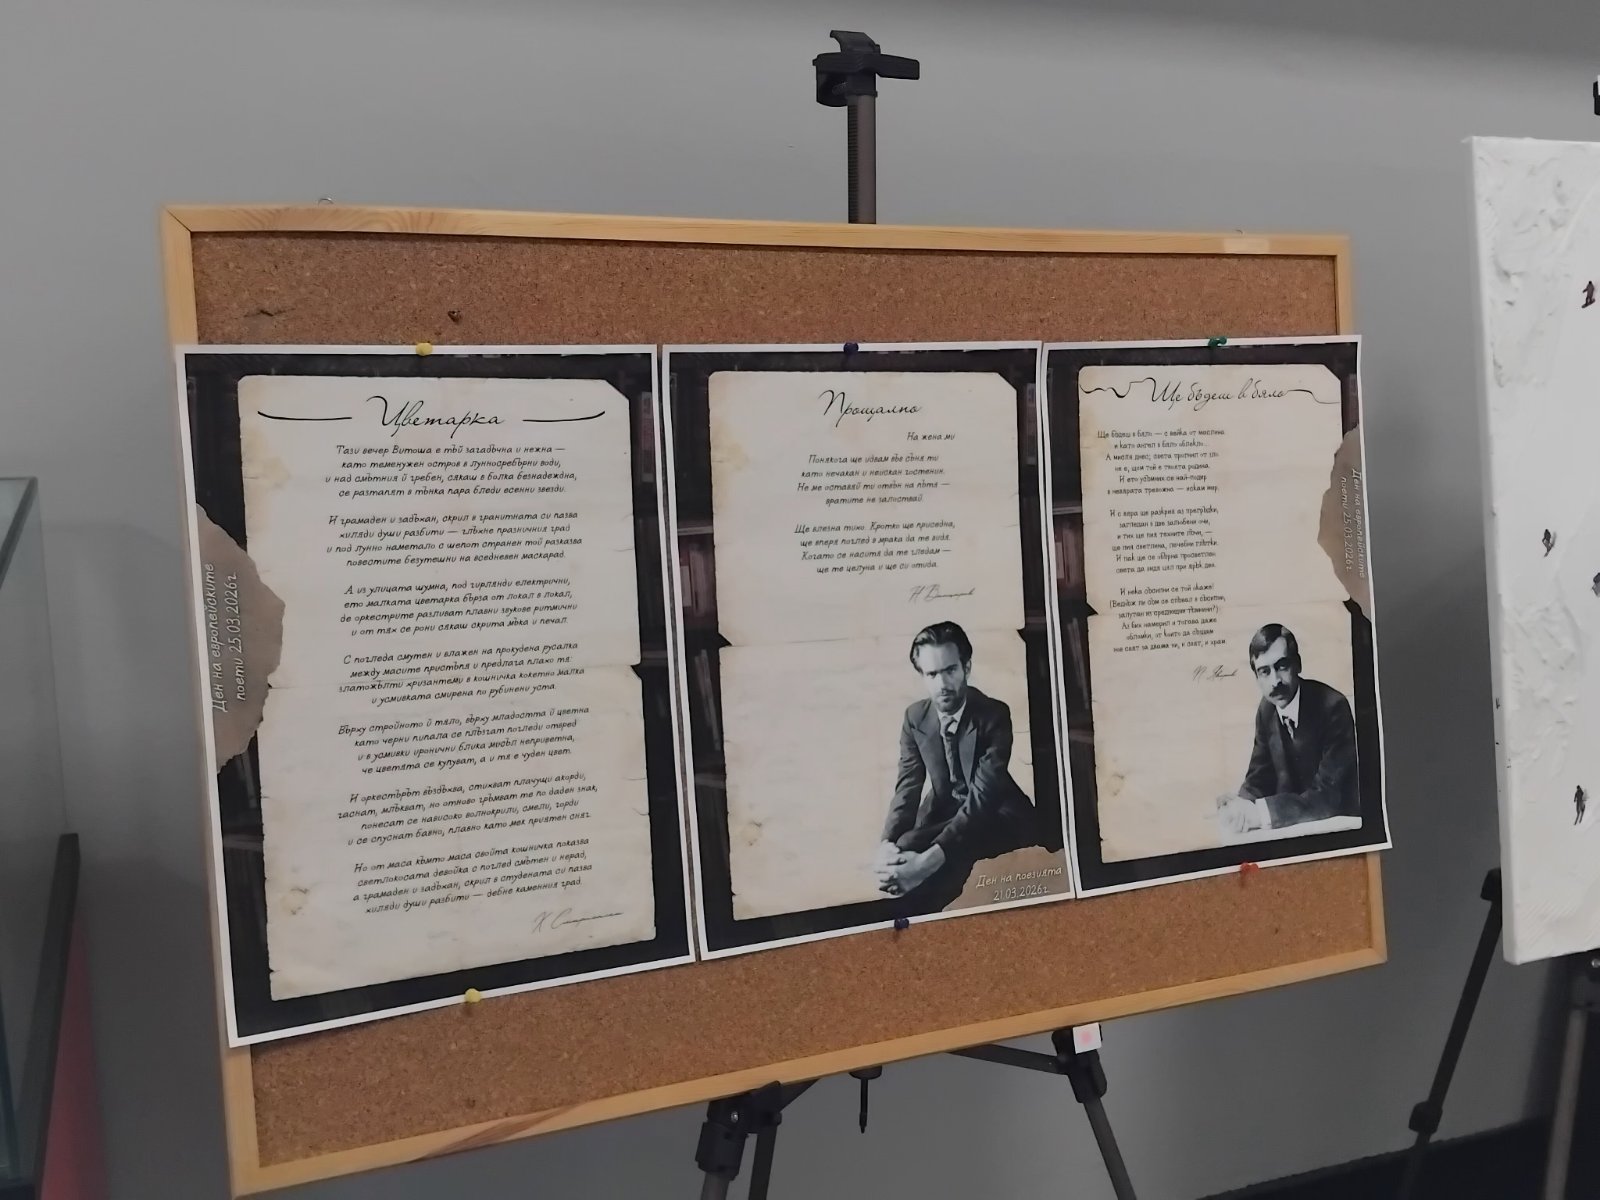 Цветарка
Тази вечер Витоша е тъй загадъчна и нежна —
като теменужен остров в лунносребърни води,
и над смътния ѝ гребен, сякаш в болка безнадеждна,
се разтапят в тънка пара бледи есенни звезди.
И грамаден и задъхан, скрил в гранитната си пазва
хиляди души разбити — глъхне празничния град
и под лунно наметало с шепот странен той разказва
повестите безутешни на вседневен маскарад.
А из улицата шумна, под гирлянди електрични,
ето малката цветарка бърза от локал в локал,
де оркестрите разливат плавни звукове ритмични
и от тях се рони сякаш скрита мъка и печал.
С погледа смутен и влажен на прокудена русалка
между масите пристъпя и предлага плахо тя:
златожълти хризантеми в кошничка кокетно малка
и усмивката смирена по рубинени уста.
Върху стройното ѝ тяло, върху младостта ѝ цветна
като черни пипала се плъзгат погледи отвред
и в усмивки иронични блика мисъл неприветна,
че цветята се купуват, а и тя е чуден цвет.
И оркестърът въздъхва, стихват плачущи акорди,
гаснат, млъкват, но отново гръмват те по даден знак,
понесат се нависоко волнокрили, смели, горди
и се спуснат бавно, плавно като мек приятен сняг.
Но от маса къмто маса свойта кошничка показва
светлокосата девойка с поглед смътен и нерад,
а грамаден и задъхан, скрил в студената си пазва
хиляди души разбити — дебне каменния град.
Ден на европейските
поети 25.03.2026г.
Прощално
На жена ми
Понякога ще идвам във съня ти
като нечакан и неискан гостенин.
Не ме оставяй ти отвън на пътя —
вратите не залоствай.
Ще влезна тихо. Кротко ще приседна,
ще вперя поглед в мрака да те видя.
Когато се наситя да те гледам —
ще те целуна и ще си отида.
Н Вапцаров
Ден на поезията
21.03.2026г.
Ще бъдеш в бяло
Ще бъдеш в бяло — с вейка от маслина
и като ангел в бяло облекло...
А мисля днес; света прогнил от зло
не е, щом той е твоята родина.
И ето усъмних се най-подир
в невярата тревожна — искам мир.
И с вяра ще разкрия аз прегръдки,
загледан в две залюбени очи,
и тих ще пия техните лъчи, —
ще пия светлина, лечебни глътки.
И пак ще се обърна просветлен
света да видя цял при ярък ден.
И нека съсипни се той окаже!
(Веднъж ли съм се спъвал в съсипни,
залутан из среднощни тъмнини?)
Аз бих намерил и тогава даже
обломки, от които да създам
нов свят за двама ни, и свят, и храм.
Ден на европейските
поети 25.03.2026г.